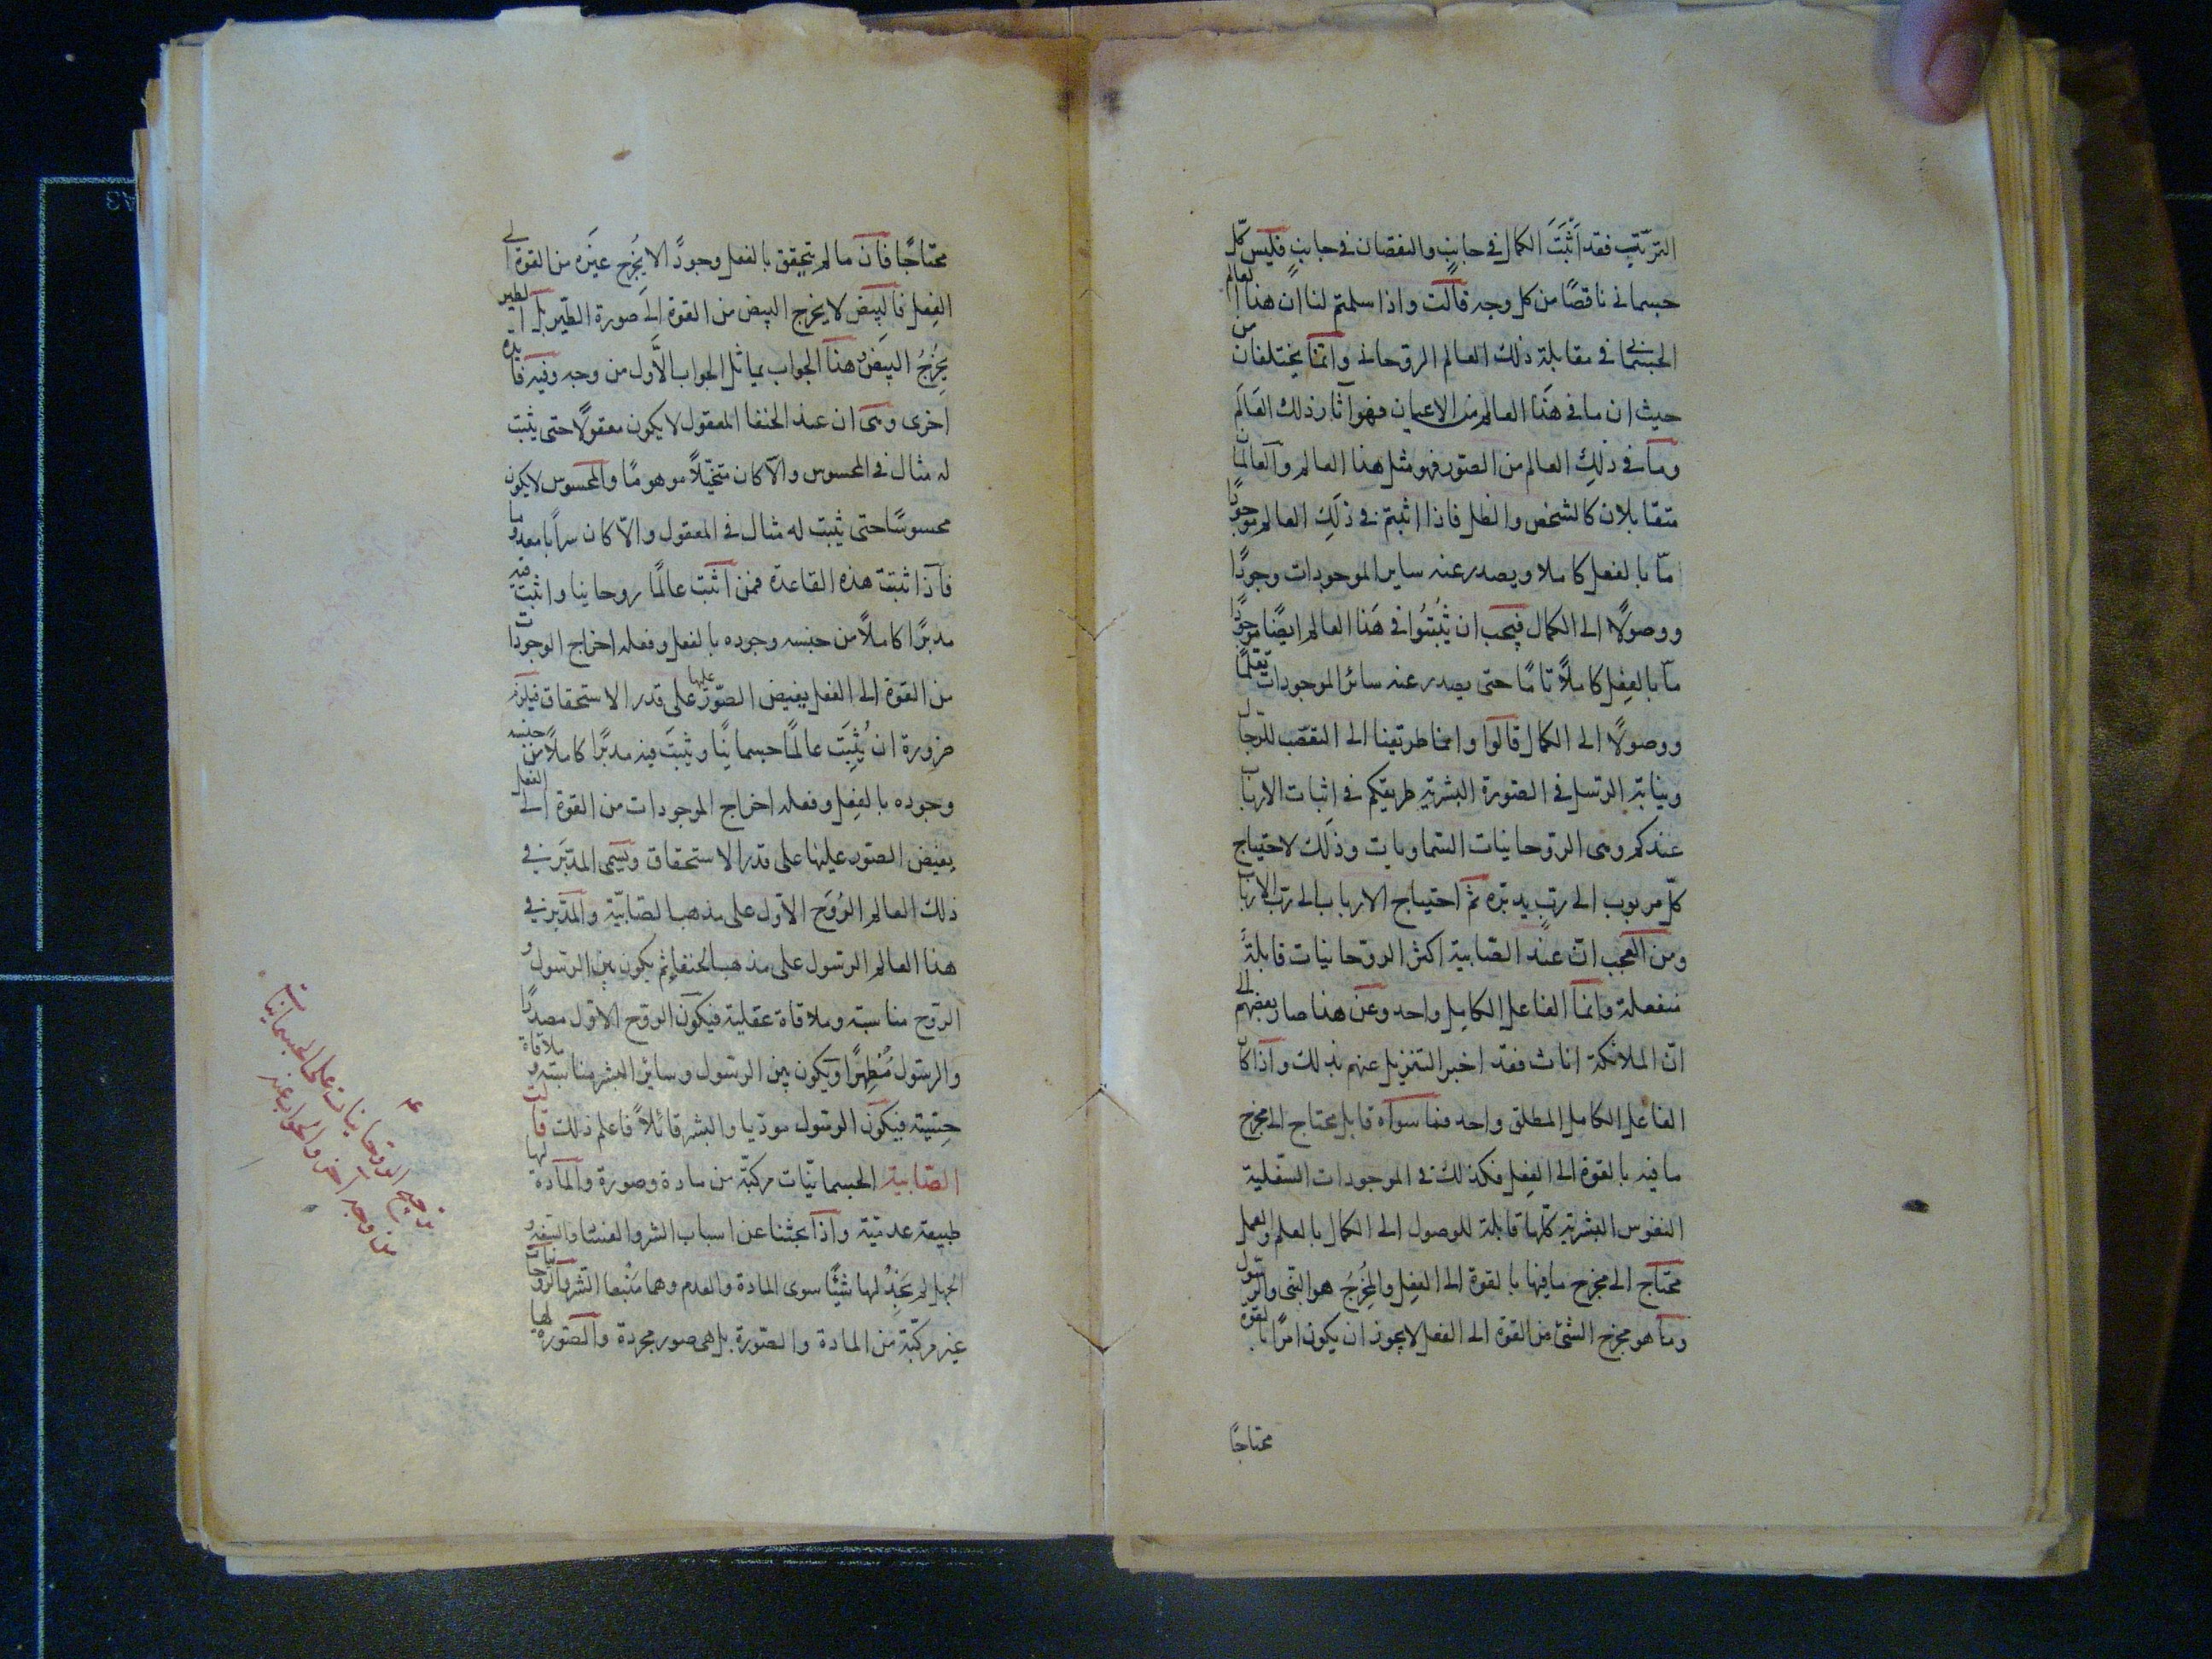 الترتيب فقد اَثْبَتَ الكمال فى جانبٍ والنقصان فى جانبٍ فليس كل
جسمانى ناقصًا من كل وجه قالت واذا سلمتم لنا ان هذا العالم
الجسمانى فى مقابلة ذلك العالم الروحانى وانما يختلفان من
حيث ان ما فى هَذَا العالم من الاعيان فهو آثار ذلك العَالَم
وما فى ذلِكَ العالم من الصّور فهو مثل هذا العالم والعالمان
متقابلان كالشخص والظل فاذا اثبتم فى ذَلِكَ العالم موجودًا
مّا بالفعل كاملا ويصدر عنه ساير الموجودات وجودًا
ووصولًا الى الكمال فيجب ان تُثبتُوا فى هَذا العالم ايضًا موجودًا
مّا بالفِعل كاملًا تامًا حتى يصدر عنه سائر الموجودات تعلمًا
ووصولًا الى الكمال قالوا وانما طريقنا الى التعصّب للرجال
ونيابة الرسل فى الصّورة البشرية طريقكم فى اثبات الارباب
عندكم وهى الروحانيات السّماويات وذَلك لاحتياج
كلّ مربوب الى ربّ يدبّره ثم احتياج الارباب الى ربّ الارباب
ومن العجب انّ عند الصّابية اكثر الروحانيات قابلةً
منفعلة وانما الفاعل الكامل واحد وعن هذا صار بعضهم الى
انّ الملائكة اناث فقد اخبر التنزيل عنهم بذلك واذا كان
الفاعل الكامل المطلق واحد فما سواه قابل محتاج الى مخرج
ما فيه بالقوة الى الفِعل فكذلك فى الموجودات السّفلية
النفوس البشرية كلّها قابلة للوصول الى الكمال بالعلم والعمل
محتاج الى مخرج ما فيها بالقوة الى الفعل والمُخِرجُ هو النبى والرسول
وما هو مخرج الشئ من القوّة الى الفعل لا يجوز ان يكون امرًا بالقوة
محتاجًا
محتاجًا فان ما لم يتحقق بالفعل وجودًا لا يُخِرج غَيَره من القوة الى
الفِعل فالبيض لا يخرج البيض من القوة الى صورة الطّير بل الطير
يُخرِجُ البيض وهذا الجواب يماثل الجواب الاَّول من وجه وفيه فائدة
اخرى وهى ان عند الحنفا المعقول لا يكون معقولًا حتى يثبت
له مثال فى المحسوس والّا كان متخيّلًا موهومًا والمحسوس لا يكون
محسوسًا حتى يثبت له مثال فى المعقول والّا كان سرابا معدوما
فاذا ثبتت هذه القاعدة فمن اثبت عالمًا روحانيا واثبت فيه
مدبرًا كاملًا من جنسه وجوده بالفعل وفعله اخراج الموجودات
من القوة الى الفعل بفيض الصّور عليها على قدر الاستحقاق فيلزم
ضرورة ان يُثِبَت عالمًا جسمانيًا ويثبتَ فيه مدبرًا كاملًا من جنسه
وجوده بالفِعل وفعله اخراج الموجودات من القوة الى الفعل
بفيض الصّور عليها على قدر الاستحقاق ويسمى المدبّر فى
ذلك العالم الرُوح الاول على مذهب الصّابيّة والمدّبر فى
هذا العالم الرسول على مذهب الحنفاء ثم يكون بين الرسول و
الروح مناسبة وملاقاة عقلية فيكون الروح الاول مصدرًا
والرسول مُظهِرًا ويكون بين الرسول وساير البشر مناسبة وملاقاة
حِسّيّة فيكون الرسول موديا والبشر قابلاً فاعلم ذلك قالت
الصّابية الجسمانيّات مركبّة من مادة وصورة والمادة لها
طبيعة عدميّة واذا بحثنا عن اسباب الشر والفساد والسّفه و
الجهل لم نَجِدُ لها شَيئًا سوى المادة والعدم وهما مَنْبعا الشر والروحانيات
غير مركبّة من المادة والصّورة بل هى صور مجردة والصّورة لها
ترجيح الروحانيات على الجسمانيات
من وجه آخر والجواب عنه